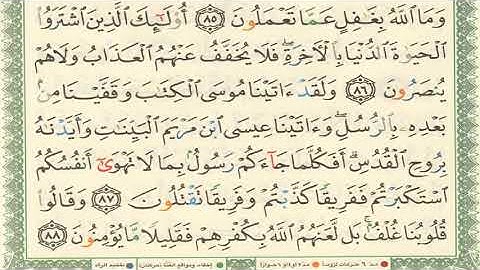 وَمَا ٱللَّهُ بِغَٰفِلٍ عَمَّا تَعۡمَلُونَ ٨٥ أُوْلَٰٓئِكَ ٱلَّذِينَ ٱشۡتَرَوُاْ
ٱلۡحَيَوٰةَ ٱلدُّنۡيَا بِٱلۡأٓخِرَةِۖ فَلَا يُخَفَّفُ عَنۡهُمُ ٱلۡعَذَابُ وَلَا هُمۡ
يُنصَرُونَ ٨٦ وَلَقَدۡ ءَاتَيۡنَا مُوسَى ٱلۡكِتَٰبَ وَقَفَّيۡنَا مِنۢ
بَعۡدِهِۦ بِٱلرُّسُلِۖ وَءَاتَيۡنَا عِيسَى ٱبۡنَ مَرۡيَمَ ٱلۡبَيِّنَٰتِ وَأَيَّدۡنَٰهُ
بِرُوحِ ٱلۡقُدُسِۗ أَفَكُلَّمَا جَآءَكُمۡ رَسُولُۢ بِمَا لَا تَهۡوَىٰٓ أَنفُسُكُمُ
ٱسۡتَكۡبَرۡتُمۡ فَفَرِيقٗا كَذَّبۡتُمۡ وَفَرِيقٗا تَقۡتُلُونَ ٨٧ وَقَالُواْ
قُلُوبُنَا غُلۡفُۢۚ بَل لَّعَنَهُمُ ٱللَّهُ بِكُفۡرِهِمۡ فَقَلِيلٗا مَّا يُؤۡمِنُونَ ٨٨